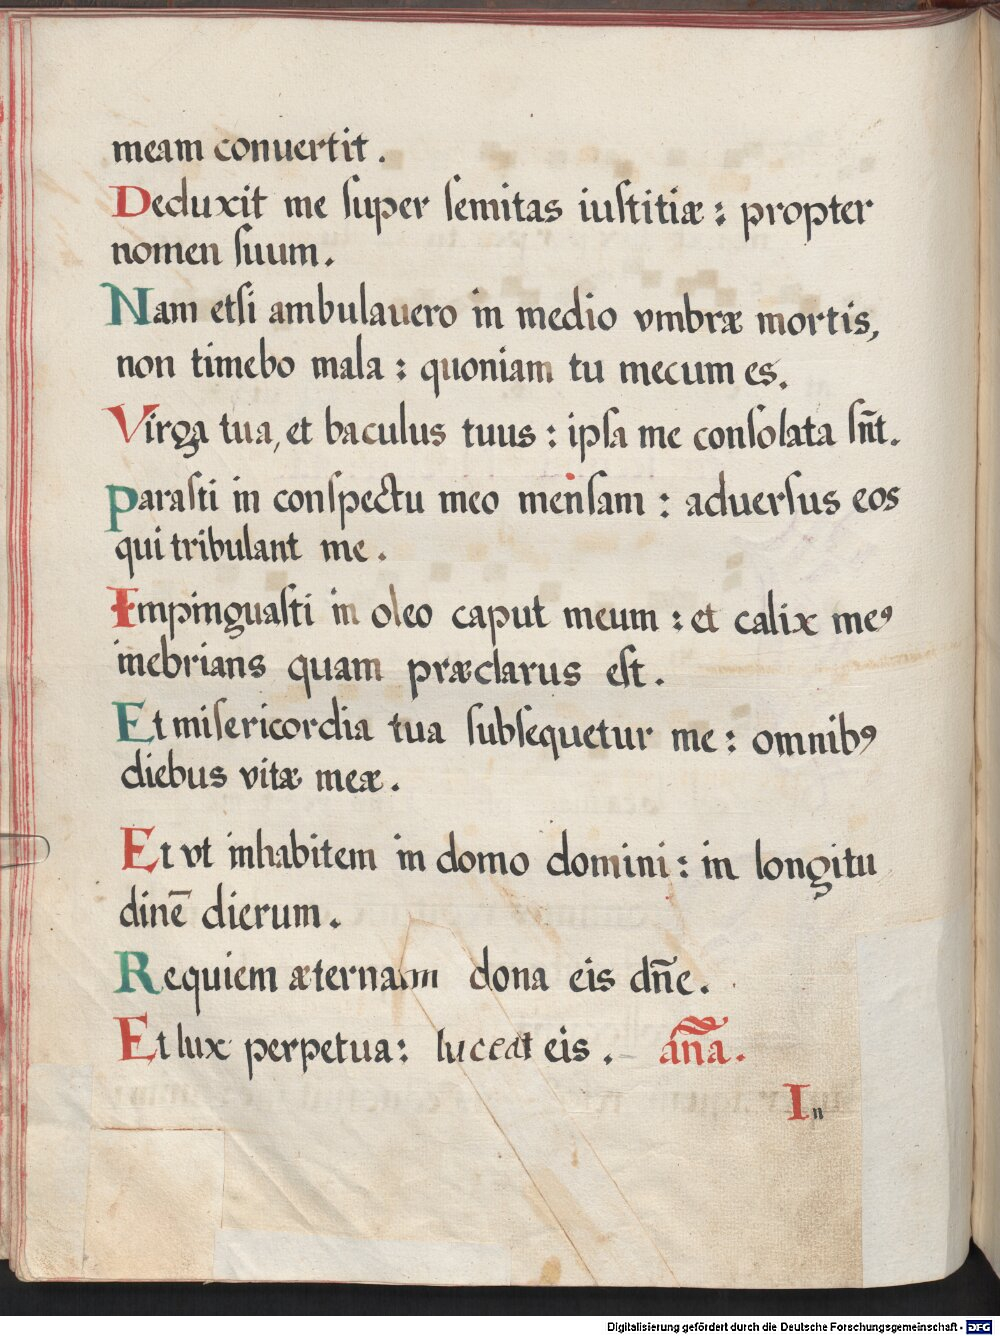 meam conuertit.
Deduxit me super semitas iustitiæ: propter
nomen suum.
Nam etsi ambulauero in medio vmbræ mortis,
non timebo mala: quoniam tu mecum es.
Virga tua, et baculus tuus: ipsa me consolata sn̄t.
Parasti in conspectu meo mensam: aduersus eos
qui tribulant me.
Impinguasti in oleo caput meum: et calix meꝰ
inebrians quam præclarus est.
Et misericordia tua subsequetur me: omnibꝰ
diebus vitæ meæ.
Et vt inhabitem in domo domini: in longitu
dinē dierum.
Requiem æternam dona eis dn̄e.
Et lux perpetua: luceat eis. an̄a.
In
Digitalisierung gefördert durch die Deutsche Forschungsgemeinschaft - DFG